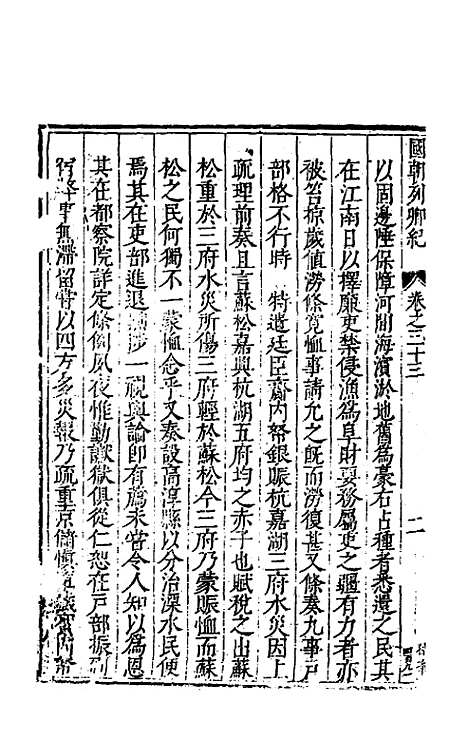 國朝列卿紀 卷之三十三 二
以固邊陲保障河間海濱淤地舊為豪右占種者悉還之民其
在江南日以擇廉吏禁侵漁為阜財要務屬吏之疆有力者亦
被笞掠歲值澇條寬恤事請允之既而澇復甚又條奏九事戸
部格不行時 特遣廷臣齎内帑銀賑杭嘉湖三府水災因上
疏理前奏且言蘇松嘉興杭湖五府均之赤子也賦稅之出蘇
松重於三府水災所傷三府輕於蘇松今三府乃蒙賑恤而蘇
松之民何獨不一蒙恤念乎又奏設高淳縣以分治溧水民便
焉其在吏部進退 一視輿論即有薦未嘗令人知以為恩
其在都察院詳定條例夙夜惟勤讞獄俱從仁恕在戸部振
事無滯留嘗以四方多災報乃疏重京儲慎 内帑